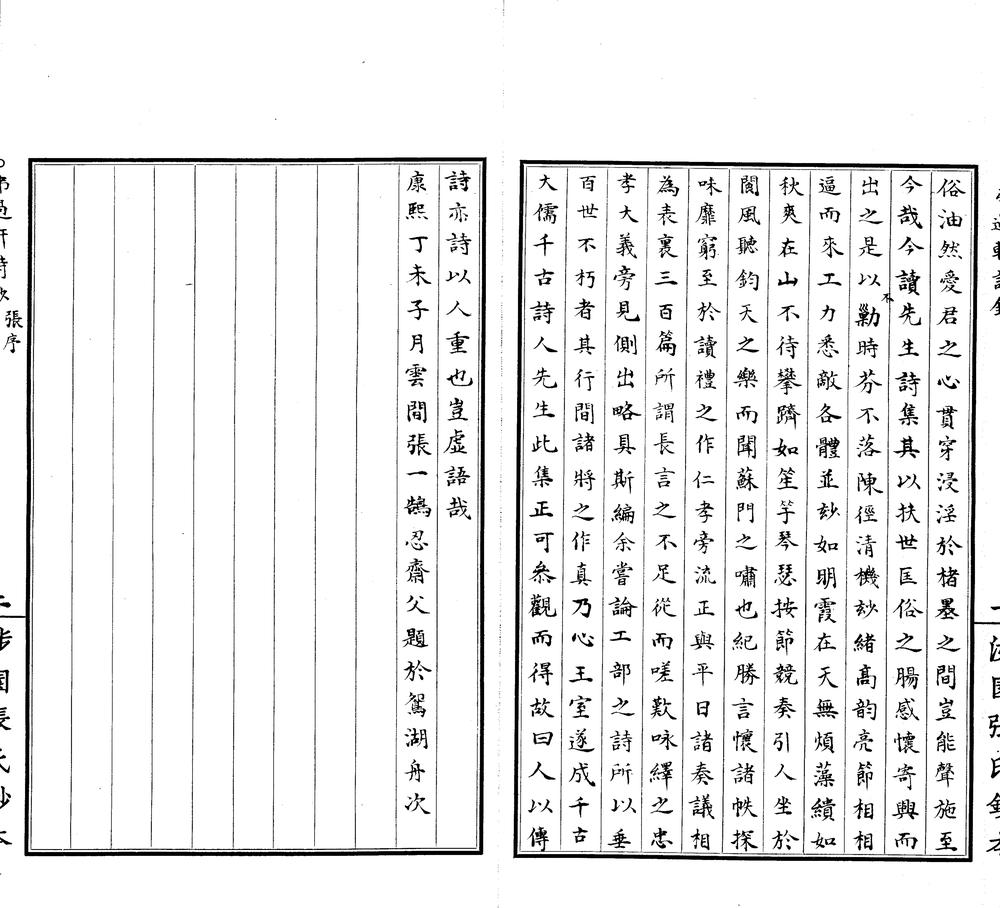 俗油然愛君之心貫穿浸淫於楮墨之間豈能聲施至
今哉今讀先生詩集其以扶世匡俗之腸感懷寄興而
出之是以不勦時芬不落陳徑清機玅緒髙韵亮節相相
逼而來工力悉敵各體並玅如明霞在天無煩藻繢如
秋爽在山不待攀躋如笙竽琴瑟按節競奏引人坐於
閬風聽鈞天之樂而聞蘇門之嘯也紀勝言懷諸帙探
味靡窮至於讀禮之作仁孝旁流正與平日諸奏議相
為表裏三百篇所謂長言之不足從而嗟歎咏繹之忠
孝大義旁見側出略具斯編余嘗論工部之詩所以垂
百世不朽者其行間諸將之作真乃心王室遂成千古
大儒千古詩人先生此集正可叅觀而得故曰人以傳
詩亦詩以人重也豈虛語哉
康熙丁未子月雲間張一鵠忍齋父題於鴛湖舟次
張序